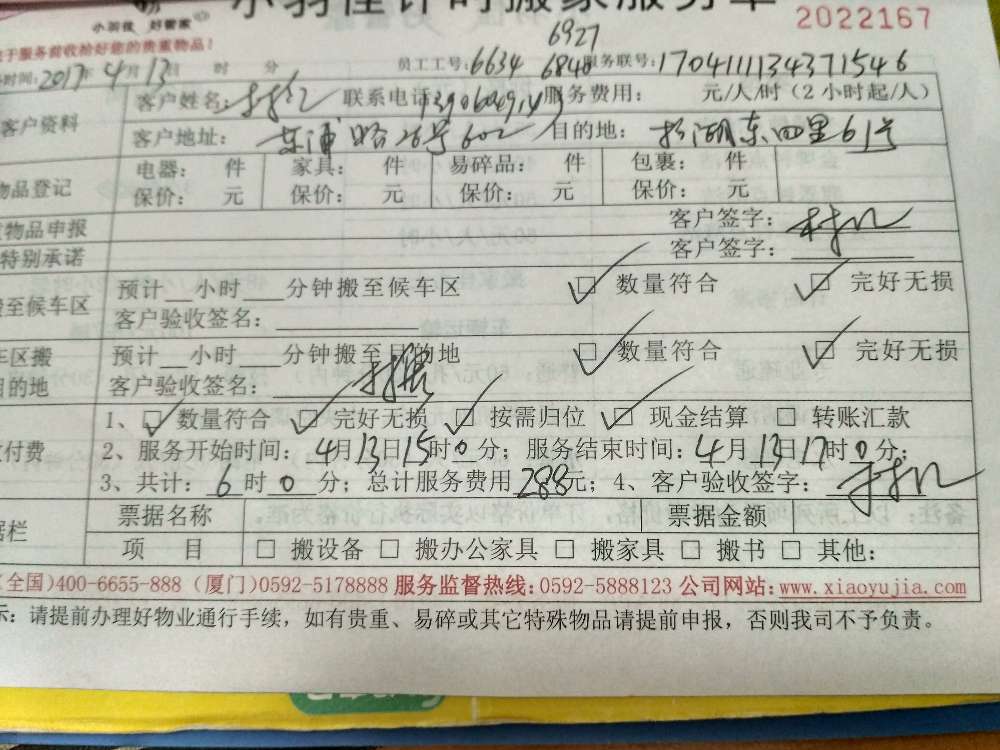 小羽佳计时搬家服务单
小羽佳 好管家
2022167
于服务前收拾好您的贵重物品!
时间: 2017年4月13日 时 分 员工工号: 6634 6840 6927 服务联号: 1704111134371546
客户资料
客户姓名: 联系电话: 服务费用: 元/人/时 (2小时起/人)
客户地址: 东浦路26号602 目的地: 松湖东四里61号
物品登记
电器: 件 家具: 件 易碎品: 件 包裹: 件
保价: 元 保价: 元 保价: 元 保价: 元
物品申报 客户签字:
特别承诺 客户签字:
搬至候车区 预计__小时___分钟搬至候车区 ☑ 数量符合 ☑ 完好无损
客户验收签名:
车区搬 预计__小时___分钟搬至目的地 ☑ 数量符合 ☑ 完好无损
目的地 客户验收签名:
付费
1、☑ 数量符合 ☑ 完好无损 ☑ 按需归位 ☑ 现金结算 □ 转账汇款
2、服务开始时间: 4月13日15时0分; 服务结束时间: 4月13日17时0分;
3、共计: 6时0分; 总计服务费用288元; 4、客户验收签字:
据栏
票据名称 票据金额
项 目 □ 搬设备 □ 搬办公家具 □ 搬家具 □ 搬书 □ 其他:
(全国)400-6655-888 (厦门)0592-5178888 服务监督热线: 0592-5888123 公司网站: www.xiaoyujia.com
示: 请提前办理好物业通行手续, 如有贵重、易碎或其它特殊物品请提前申报, 否则我司不予负责。